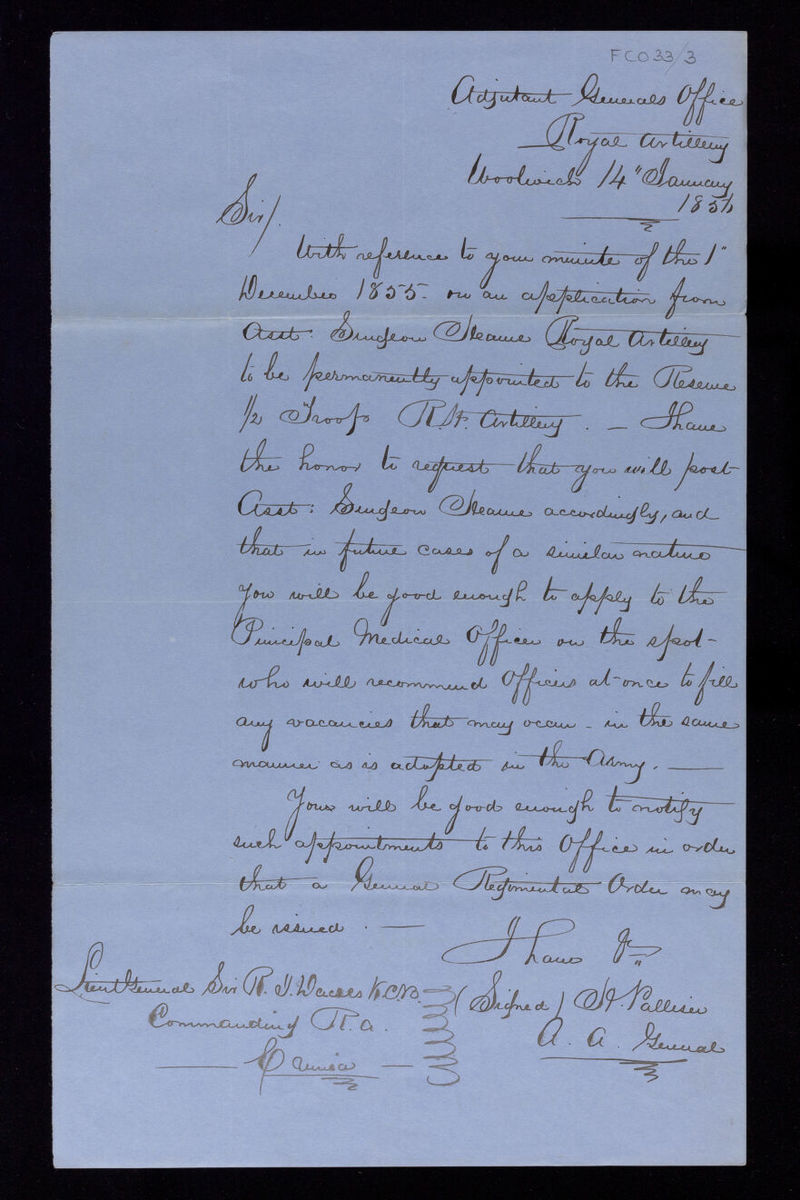 FCO33/3
Adjutant Generals Office
Royal Artillery
Woolwich 14" January
1856
Sir/.
With reference to your minute of the 1"
December 1855 - on an application from
Asst: Surgeon Hearne Royal Artillery
to be permanently appointed to the Reserve
1/2 Troop R.H. Artillery. — I have
the honor to request that you will post
Asst: Surgeon Hearne accordingly, and
that in future cases of a similar nature
you will be good enough to apply to the
Principal Medical Officer on the spot -
who will recommend Officers at once to fill
any vacancies that may occur - in the same
manner as is adopted in the Army. —
You will be good enough to notify
such appointments to this Office in order
that a General Regimental Order may
be issued. —
I have &c
Lieut General Sir R. J. Dacres K.C.B.
(Signed) H. Palliser
Commanding R.A.
A. A. General
Crimea